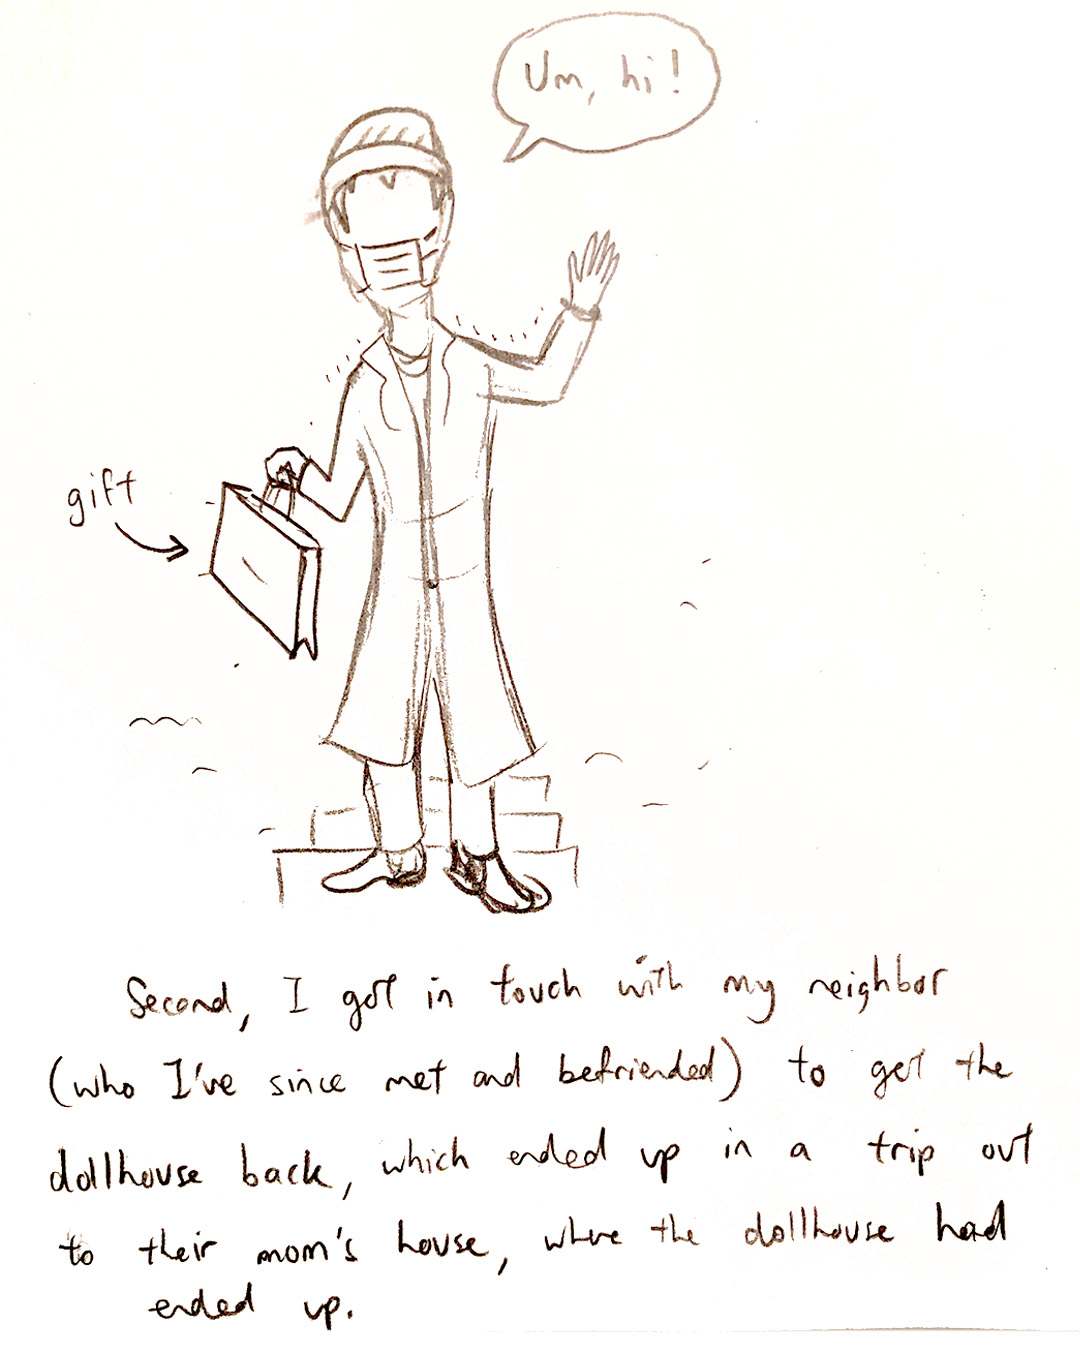 Um, hi!
gift
Second, I got in touch with my neighbor
(who I've since met and befriended) to get the
dollhouse back, which ended up in a trip out
to their mom's house, where the dollhouse had
ended up.